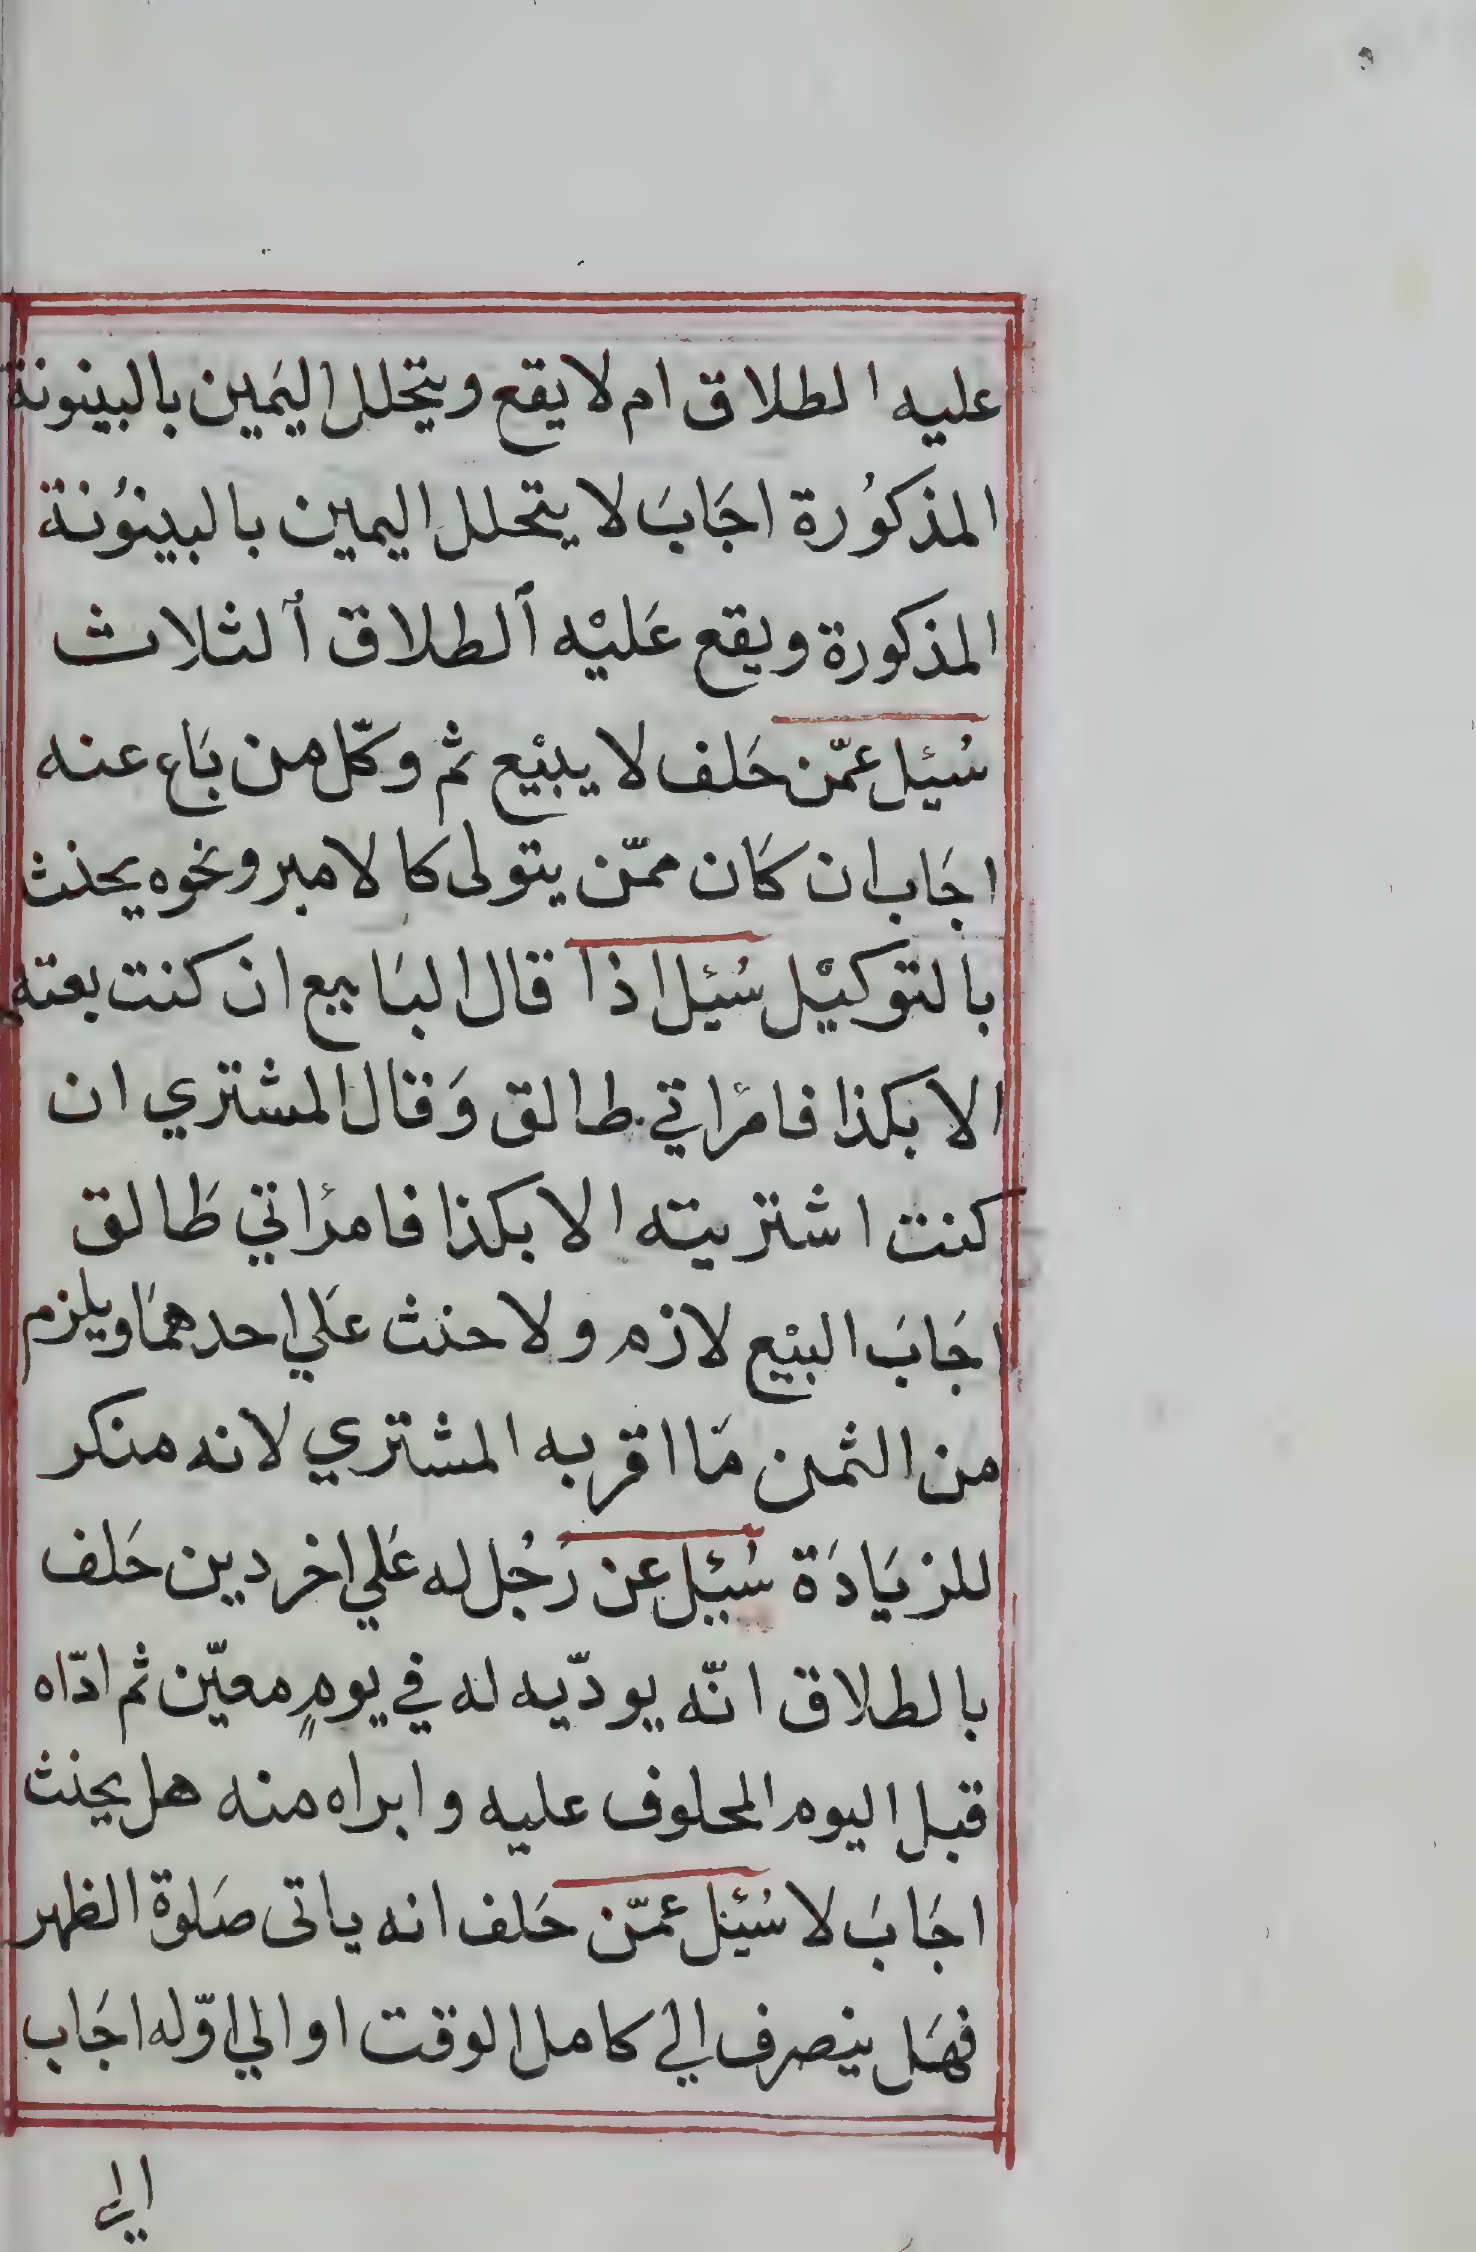 عليه الطلاق ام لا يقع ويتحلل اليَمين بالبينونة
المذكوُرة اجَابَ لا يتحلل اليمين بالبينوُنة
المذكورة ويقع عَليْه ٱلطلاق ٱلثلاث
سُئيل عمّن حَلف لا يبيْع ثم وكّل من بَاع عنه
اجَاب ان كَان ممّن يتولى كالامير ونحوه يحنث
بالتوكيْل سُئيل اذا قال البَايع ان كنت بعته
الا بكذا فامرٔاتي طالق وَقال المشتري ان
كنت اشتريته الا بكذا فامرٔاتي طَالق
اجَابَ البيْع لازم ولا حنث عَلي احدهمَا ويلزم
من الثمن مَا اقر به المشتري لانه منكر
للزيَادَة سُئيل عن رَجُل له عَلي اخر دين حَلف
بالطلاق انّه يودّيه له في يومٍ معيّن ثم ادّاه
قبل اليوم المحلوف عليه وابراه منه هل يحنث
اجَابَ لا سُئيل عمّن حَلف انه ياتى صَلوة الظهر
فهَل ينصرف الي كامل الوقت او الي اوّله اجَاب
الي